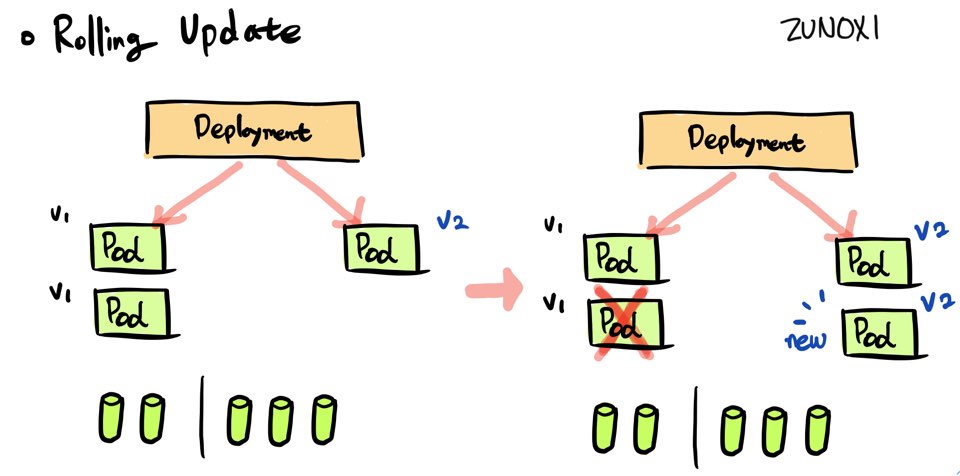 • Rolling Update
ZUNOXI
Deployment
V1
Pod
V2
Pod
V1
Pod
Deployment
V1
Pod
V2
Pod
V1
Pod
new
V2
Pod